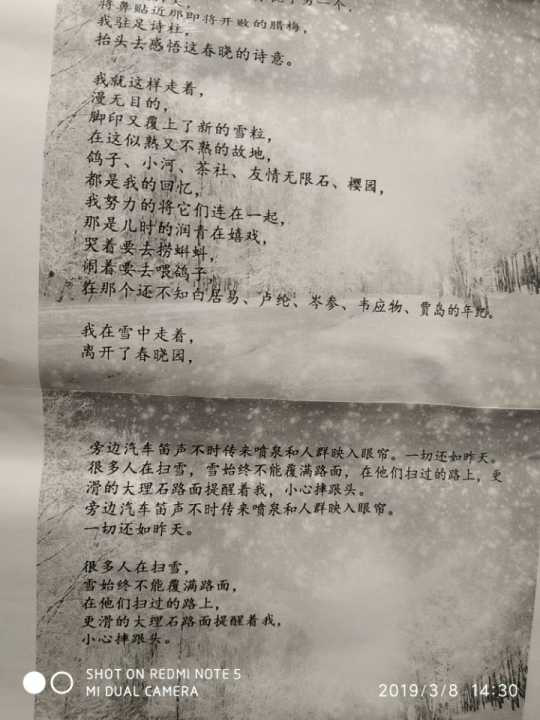 将鼻贴近那即将开败的腊梅，
我驻足诗柱，
抬头去感悟这春晓的诗意。
我就这样走着，
漫无目的，
脚印又覆上了新的雪粒，
在这似熟又不熟的故地，
鸽子、小河、茶社、友情无限石、樱园，
都是我的回忆，
我努力的将它们连在一起，
那是儿时的润青在嬉戏，
哭着要去捞蝌蚪，
闹着要去喂鸽子，
在那个还不知白居易、卢纶、岑参、韦应物、贾岛的年纪。
我在雪中走着，
离开了春晓园，
旁边汽车笛声不时传来喷泉和人群映入眼帘。一切还如昨天。
很多人在扫雪，雪始终不能覆满路面，在他们扫过的路上，更
滑的大理石路面提醒着我，小心摔跟头。
旁边汽车笛声不时传来喷泉和人群映入眼帘。
一切还如昨天。
很多人在扫雪，
雪始终不能覆满路面，
在他们扫过的路上，
更滑的大理石路面提醒着我，
小心摔跟头。
SHOT ON REDMI NOTE 5
MI DUAL CAMERA
2019/3/8 14:30